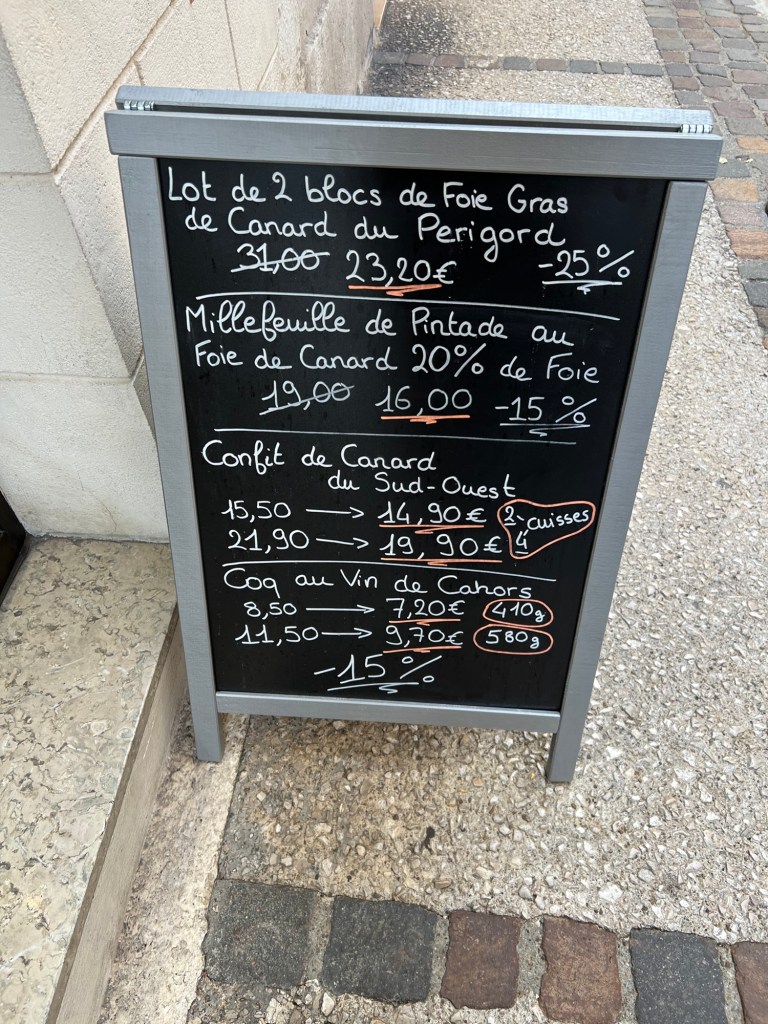 Lot de 2 blocs de Foie Gras
de Canard du Perigord
31,00 23,20€ -25%
Millefeuille de Pintade au
Foie de Canard 20% de Foie
19,00 16,00 -15%
Confit de Canard
du Sud-Ouest
15,50 → 14,90€ 2 cuisses
21,90 → 19,90€ 4
Coq au Vin de Cahors
8,50 → 7,20€ 410g
11,50 → 9,70€ 580g
-15%